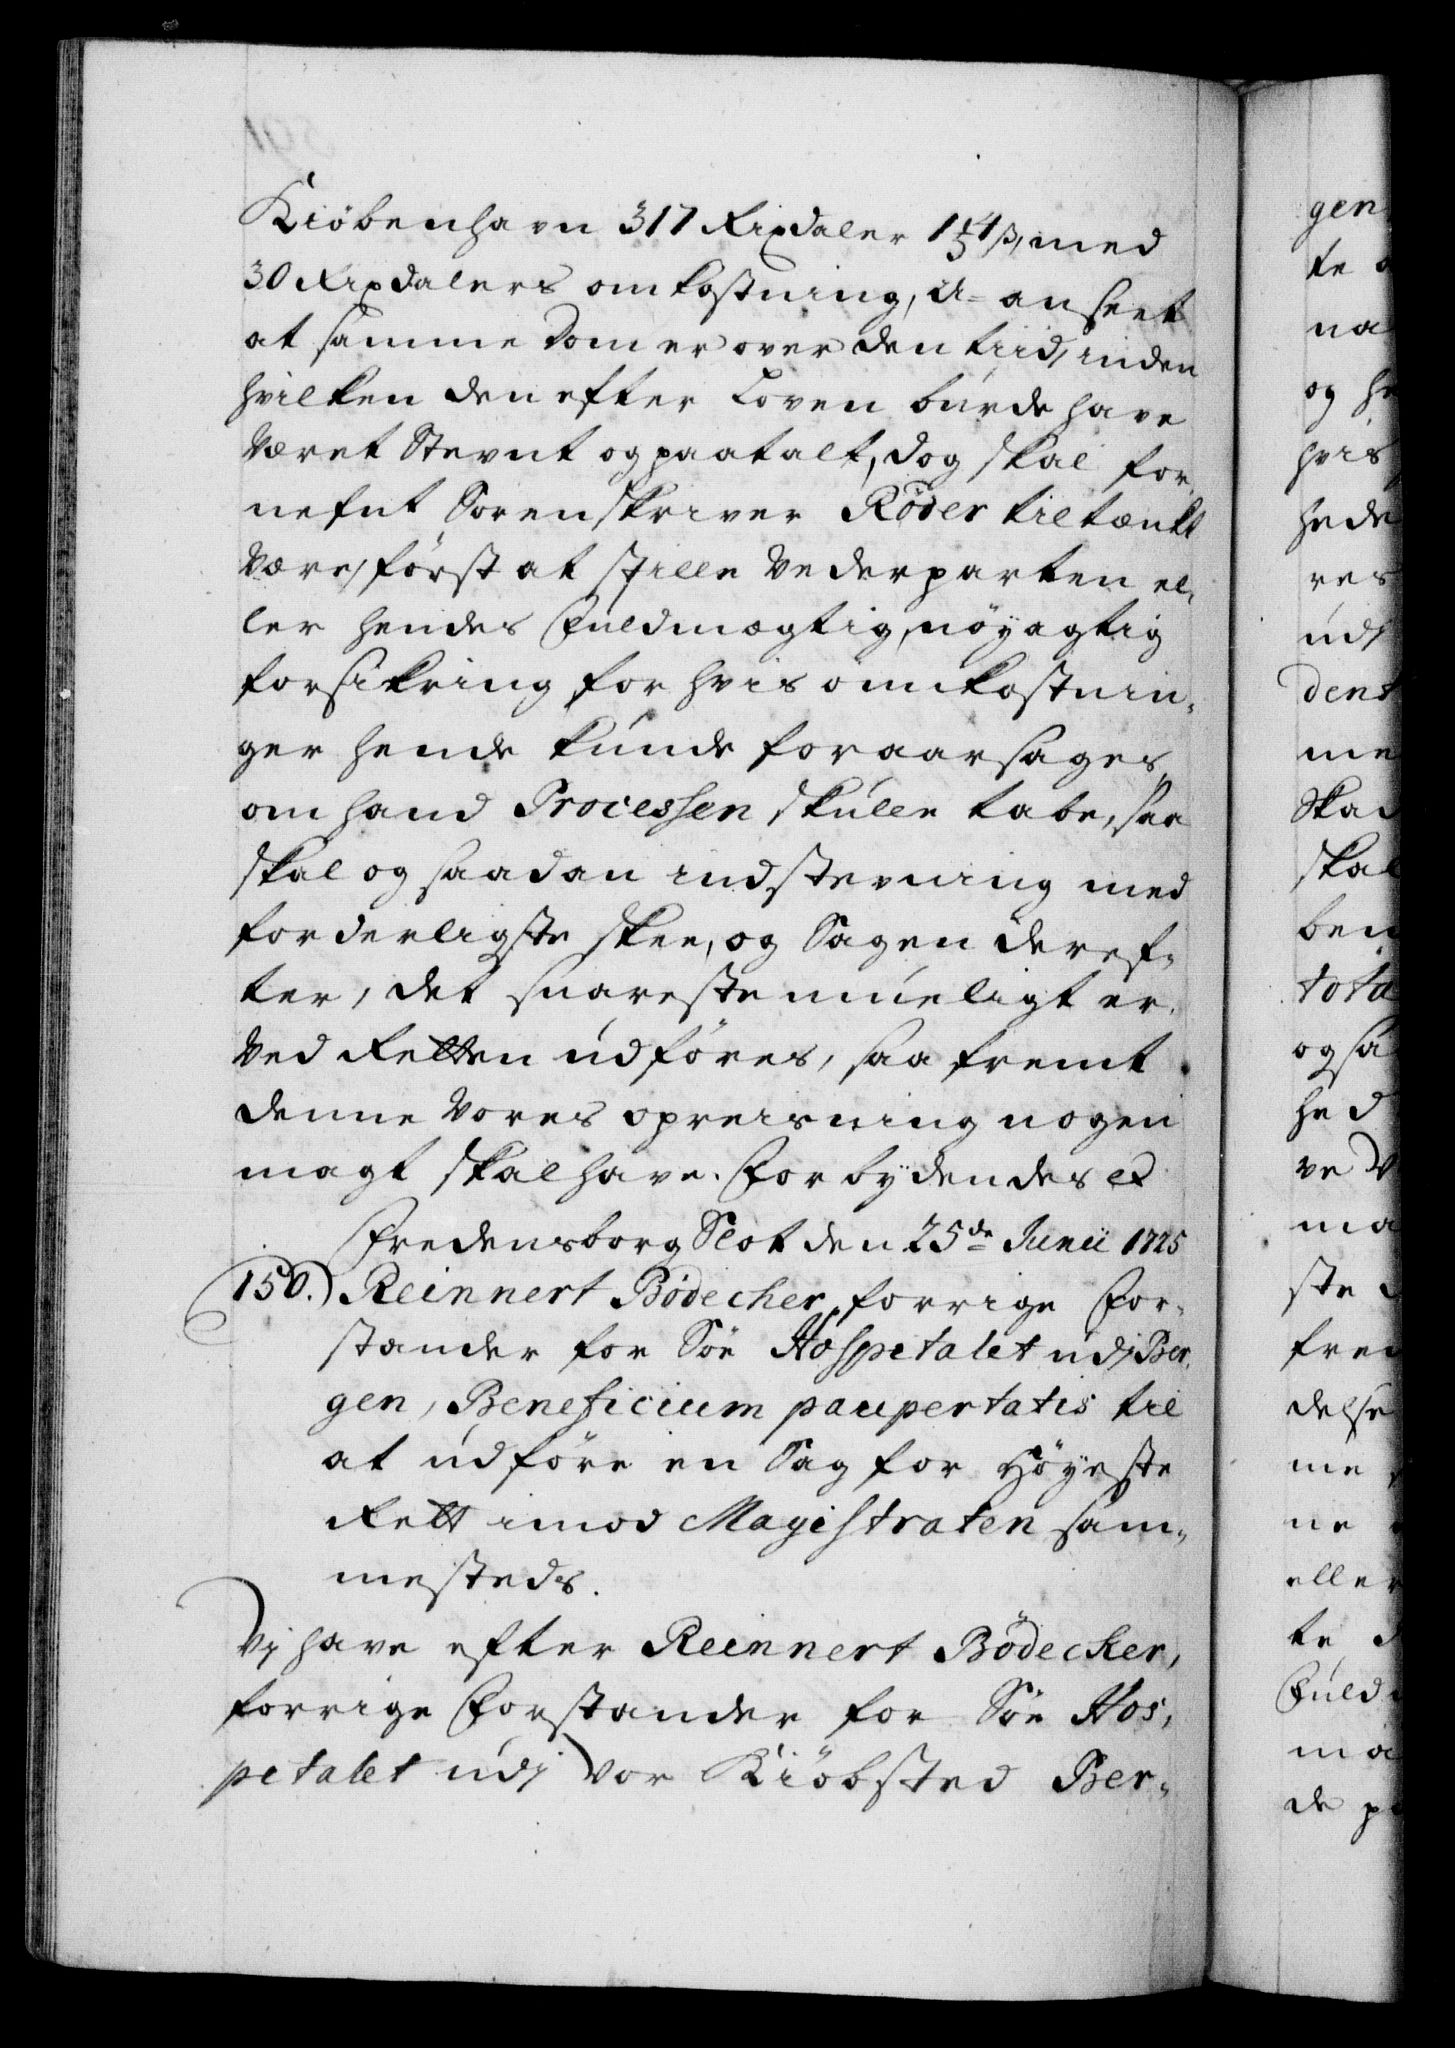 Kiöbenhavn 317 Rixdaler 1 4/5 ß, med
30 Rixdalers omkostning, u-anseet
at samme Dom er over den tiid, inden
hvilken den efter Loven burde have
været Stevnt og paatalt, dog skal for,
nefnt Sorenskriver Röder tiltænkt
være, först at stille Vederparten el,
ler hendes Fuldmægtig, nöyagtig
forsikring for hvis omkostnin,
ger hende kunde foraarsages,
om hand Processen skulle tabe, saa
skal og saadan indstevning med
forderligste skee, og Sagen deref,
ter, det snareste mueligt er,
ved Retten udföres, saa fremt
denne Vores opreisning nogen
magt skal have. Forbydendes etc
Fredensborg Slot den 25de Junii 1725
150.) Reinnert Bödecher, forrige For,
stander for Söe Hospetalet udj Ber,
gen, Beneficium paupertatis til
at udföre en Sag for Höyeste
Rett imod Magistraten sam,
mesteds.
Vj have efter Reinnert Bödecker,
forrige Forstander for Söe Hos,
petalet udj Vor Kiöbsted Ber,
gen
te
na
og
hvis
hede
res
udj
dent
me
Skad
skal
ben
tota
og saa
hed
ve
ma
ste
frem
delse
me
ne
eller
te
Fuld
ma
de